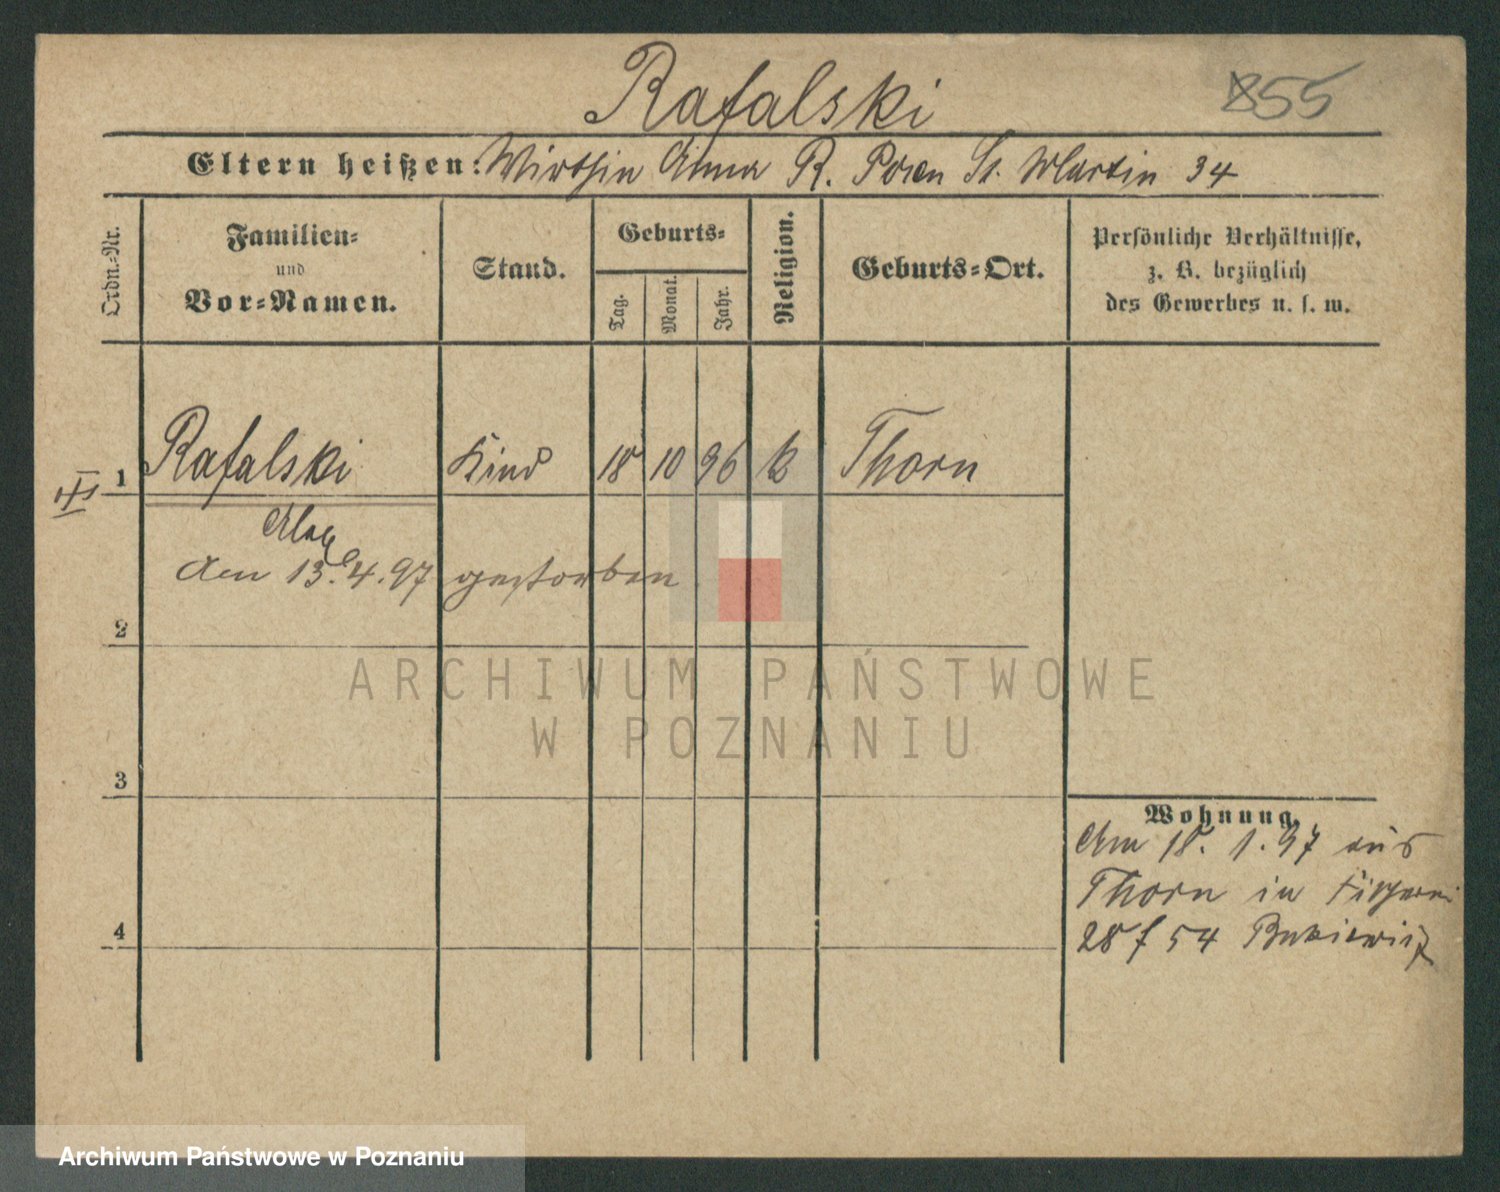 Rafalski
855
Eltern heißen: Wirthin Anna R. Posen St. Martin 34
Ordn.-Nr.
Familien-
und
Vor-Namen.
Stand.
Geburts-
Tag.
Monat.
Jahr.
Religion.
Geburts-Ort.
Persönliche Verhältnisse,
z. B. bezüglich
des Gewerbes u. s. w.
III
1 Rafalski Kind 18 10 96 k Thorn
Am 13.4.97 gestorben
2
3
4
Wohnung.
Am 18. 1. 97 aus
Thorn in Fischerei
28 f 54
ARCHIWUM PAŃSTWOWE
W POZNANIU
Archiwum Państwowe w Poznaniu